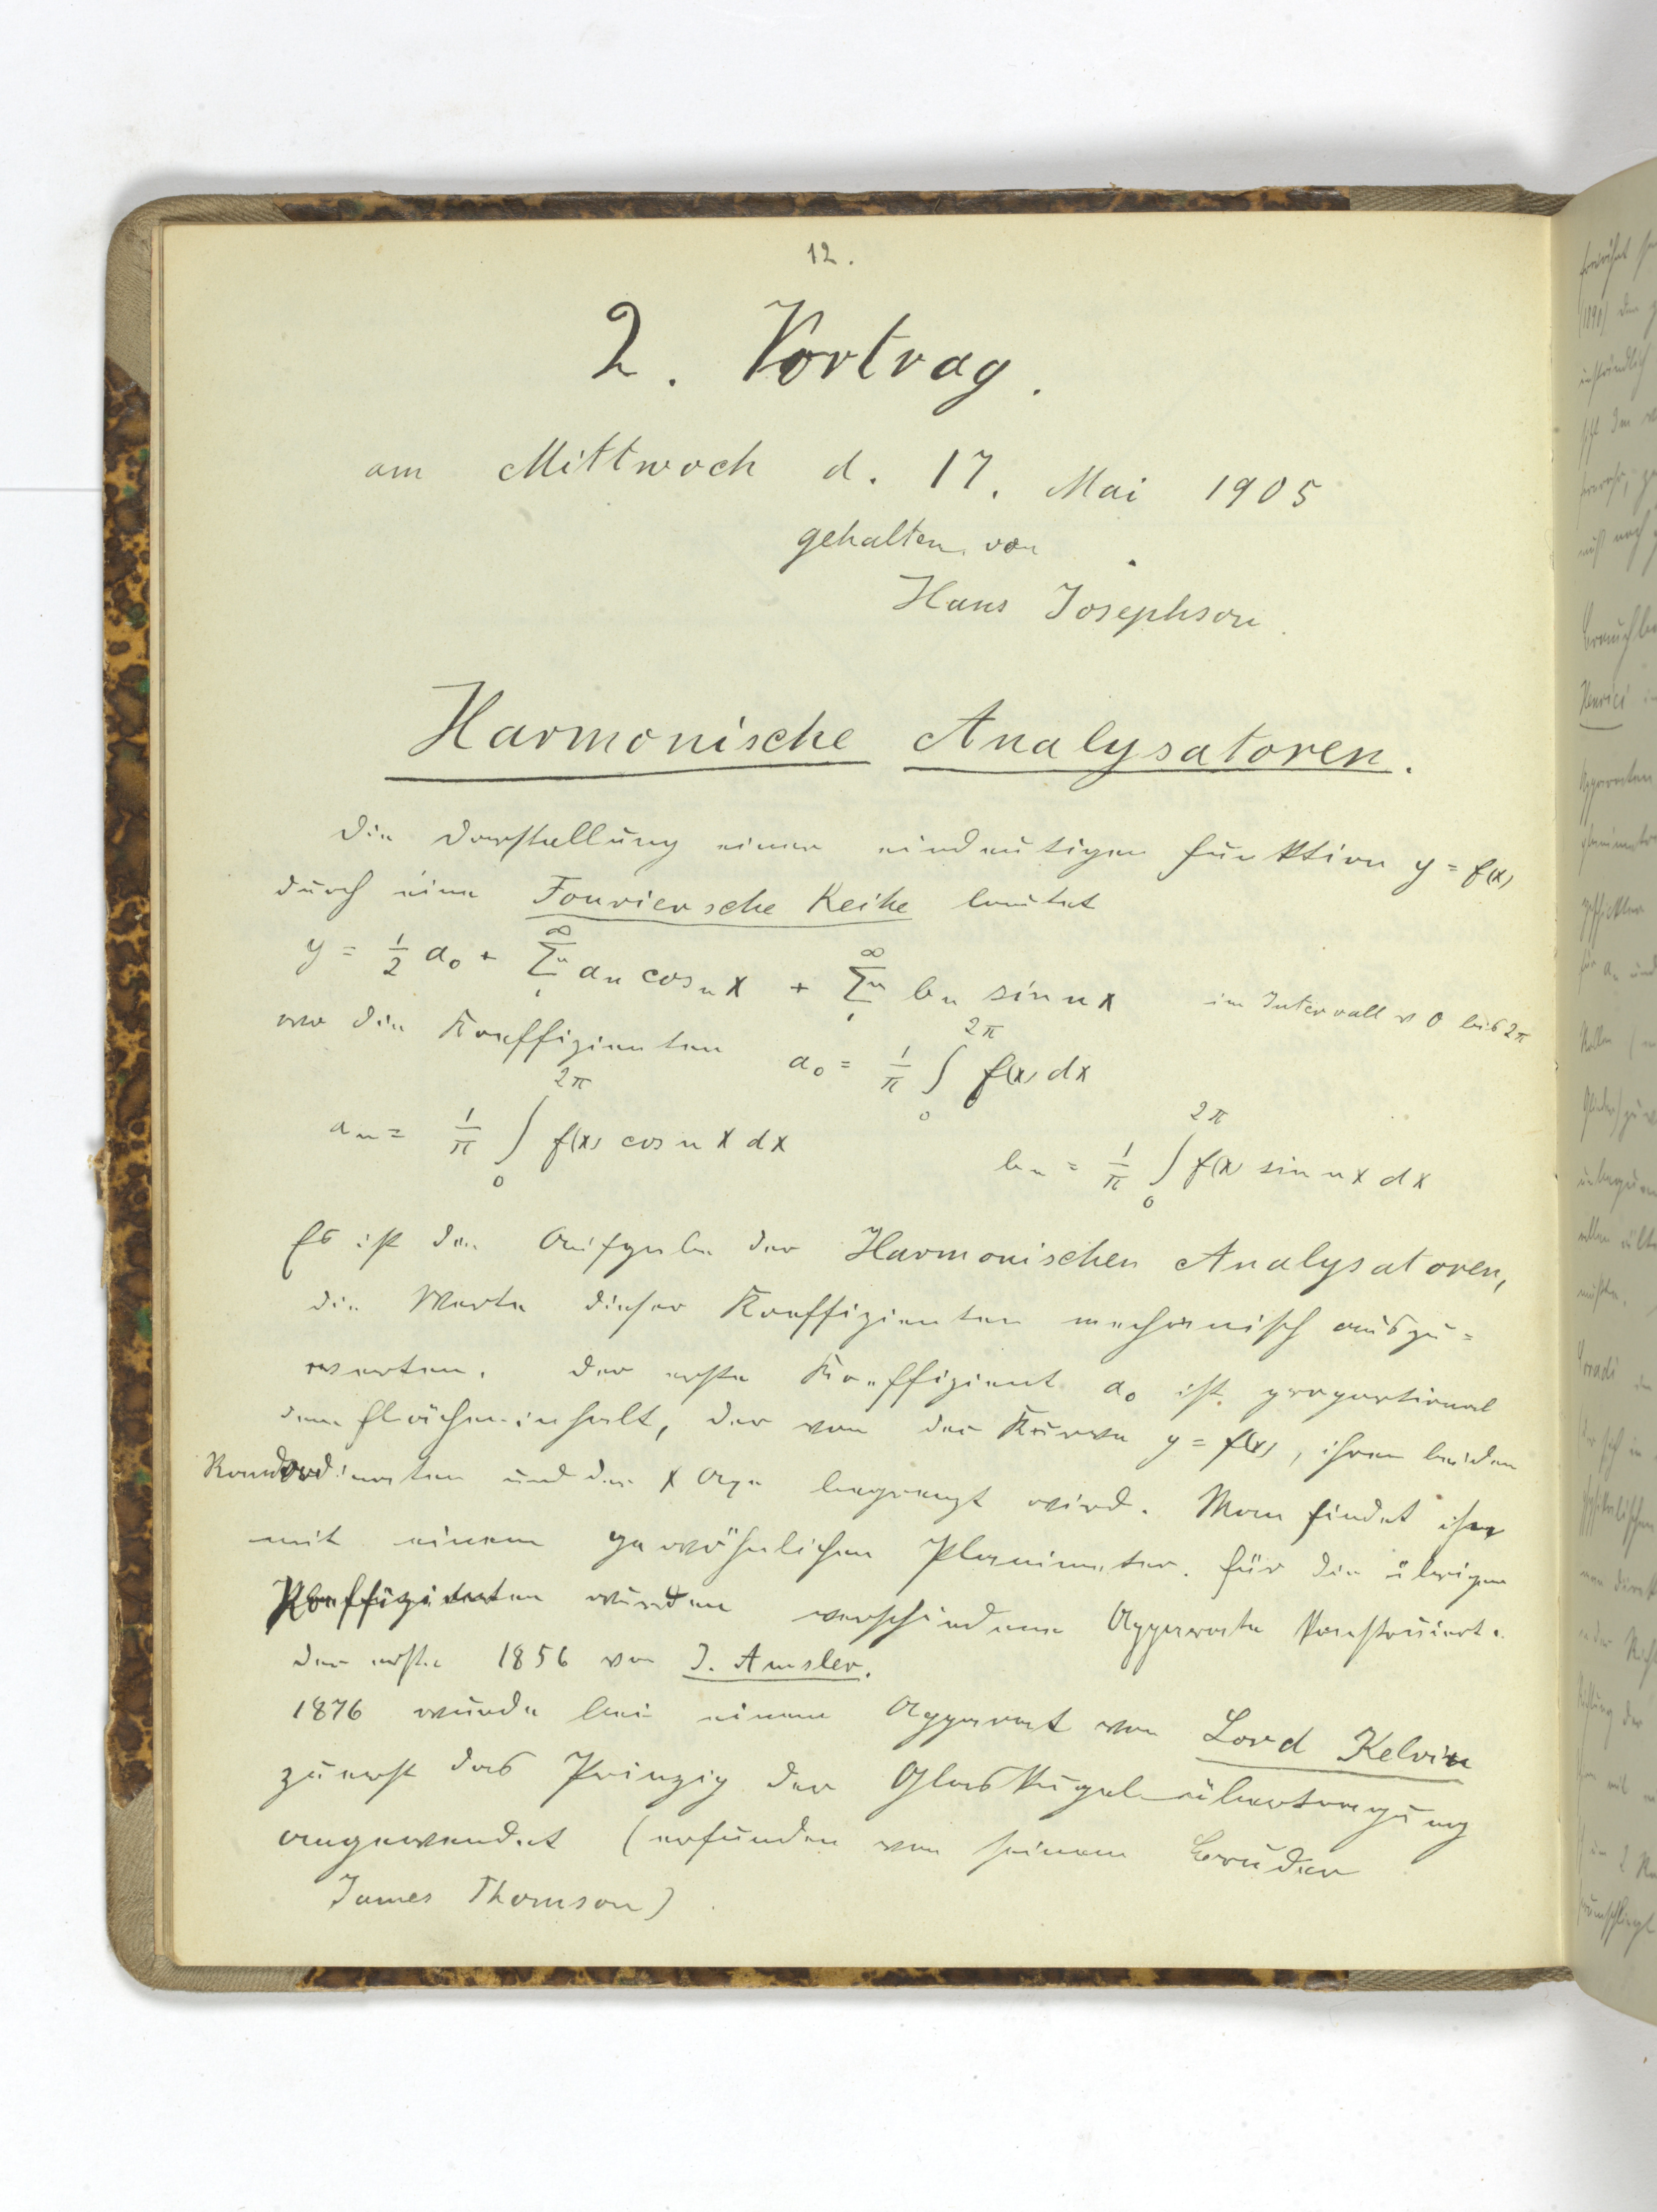 12.
2. Vortrag.
am Mittwoch d. 17. Mai 1905
gehalten von
Hans Josephson.
Harmonische Analysatoren.
Die Darstellung einer eindeutigen Funktion y = f(x)
durch eine Fouriersche Reihe lautet
y = 1/2 a₀ + ∞Σⁿ₁ aₙ cos n x + ∞Σⁿ₁ bₙ sin n x im Intervall v 0 bis 2π
wo die Koeffizienten a₀ = 1/π ∫₀^2π f(x) dx
aₙ = 1/π ∫₀^2π f(x) cos n x dx bₙ = 1/π ∫₀^2π f(x) sin n x dx
Es ist die Aufgabe der Harmonischen Analysatoren,
die Werte dieser Koeffizienten mechanisch auszu=
werten. Der erste Koeffizient a₀ ist proportional
dem Flächeninhalt, der von der Kurve y = f(x), ihren beiden
Randordinaten und der x Axe begrenzt wird. Man findet ihn
mit einem gewöhnlichen Planimeter. Für die übrigen
Koeffizienten wurden verschiedene Apparate konstruiert.
Der erste 1856 von J. Amsler.
1876 wurde bei einem Apparat von Lord Kelvin
zuerst das Prinzip der Glaskugel-übertragung
angewendet (erfunden von seinem Bruder
James Thomson)